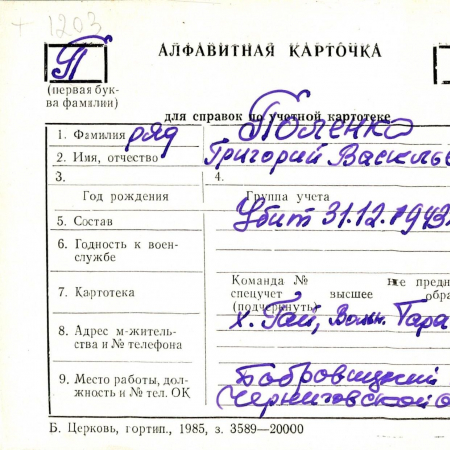 + 1203
П
АЛФАВИТНАЯ КАРТОЧКА
(первая бук-
ва фамилии)
для справок по учетной картотеке
1. Фамилия ряд Поленко
2. Имя, отчество Григорий Василье
3. 4.
Год рождения Группа учета
5. Состав Убит 31.12.1943
6. Годность к воен-
службе
Команда №
7. Картотека спецучет высшее обра
(подчеркнуть)
8. Адрес м-житель-
ства и № телефона
х. Гай, Вольн. Тара
9. Место работы, дол-
жность и № тел. ОК
Бобровицкий
Черниговской о
Б. Церковь, гортип., 1985, з. 3589—20000